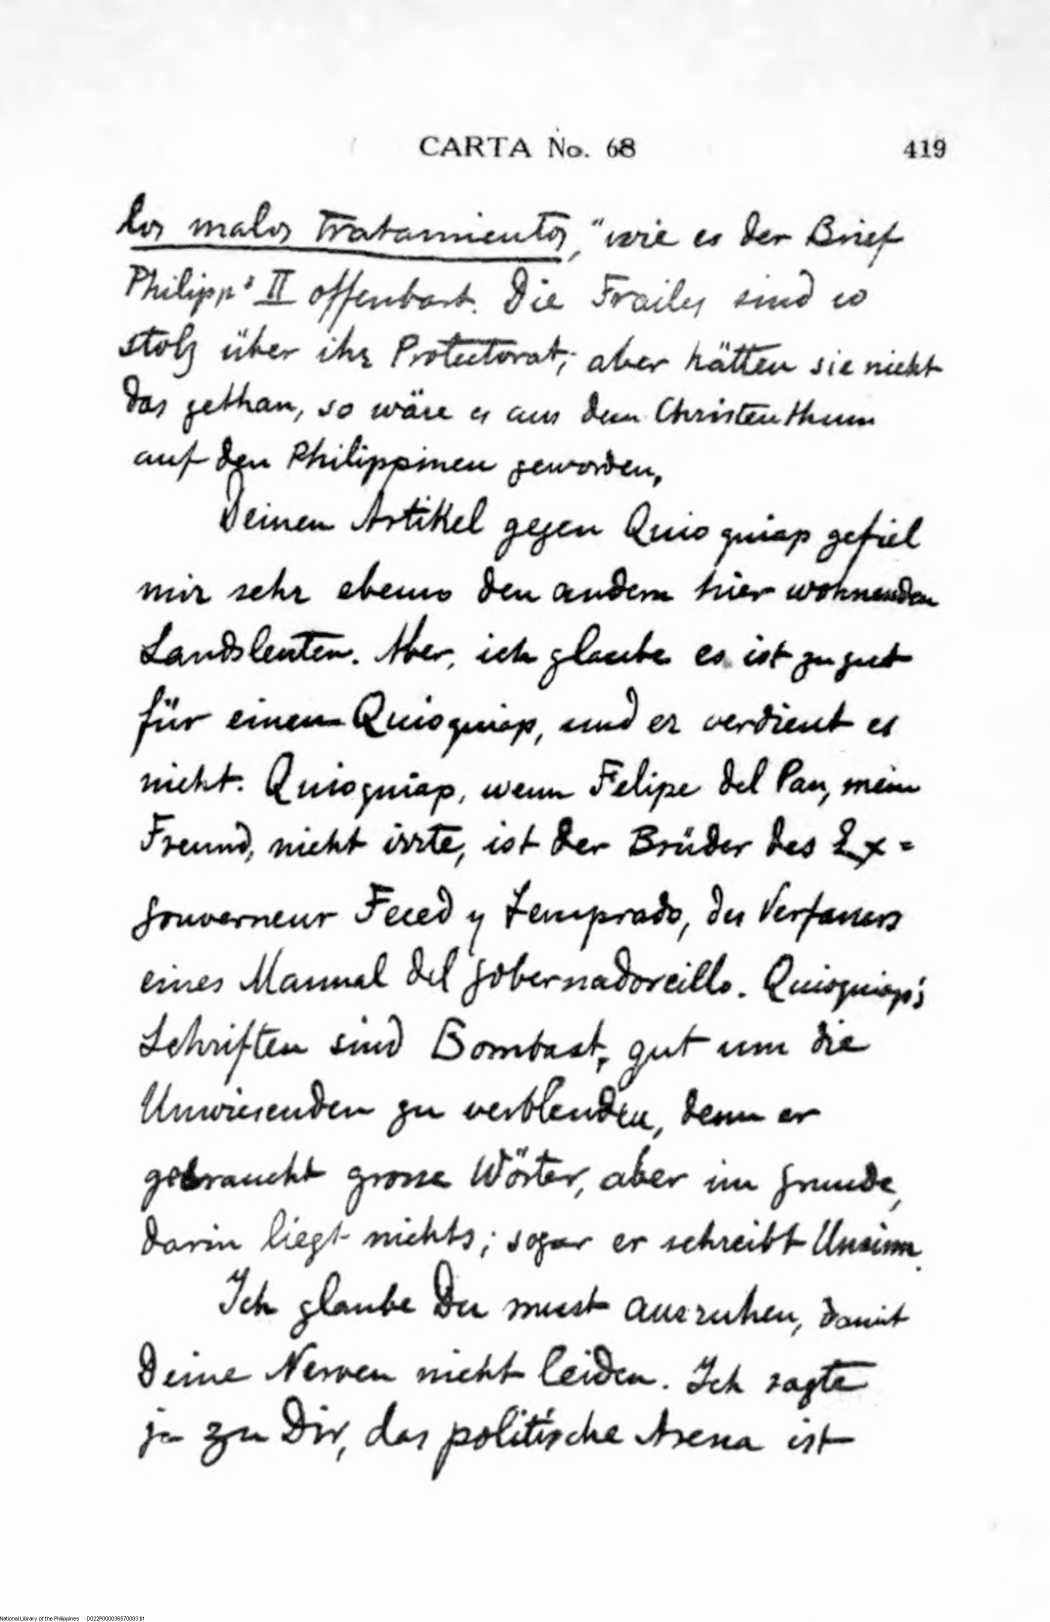 CARTA No. 68 419
los malos tratamientos," wie es der Brief
Philipp's II offenbart. Die Frailes sind so
stolz über ihr Protectorat; aber hätten sie nicht
das gethan, so wäre es aus dem Christenthum
auf den Philippinen geworden,
Deinen Artikel gegen Quioquiap gefiel
mir sehr ebenso den andern hier wohnenden
Landsleuten. Aber, ich glaube es ist zu gut
für einen Quioquiap, und er verdient es
nicht. Quioquiap, wenn Felipe del Pan, mein
Freund, nicht irrte, ist der Brüder des Ex=
gouverneur Feced y Temprado, des Verfassers
eines Manual del gobernadorcillo. Quioquiap's
Schriften sind Bombast, gut um die
Unwissenden zu verblenden, denn er
gebraucht grosse Wörter, aber im Grunde,
darin liegt nichts; sogar er schreibt Unsinn.
Ich glaube Du musst auszuhen, damit
Deine Nerven nicht leiden. Ich sagte
ja zu Dir, das politische Arena ist
National Library of the Philippines